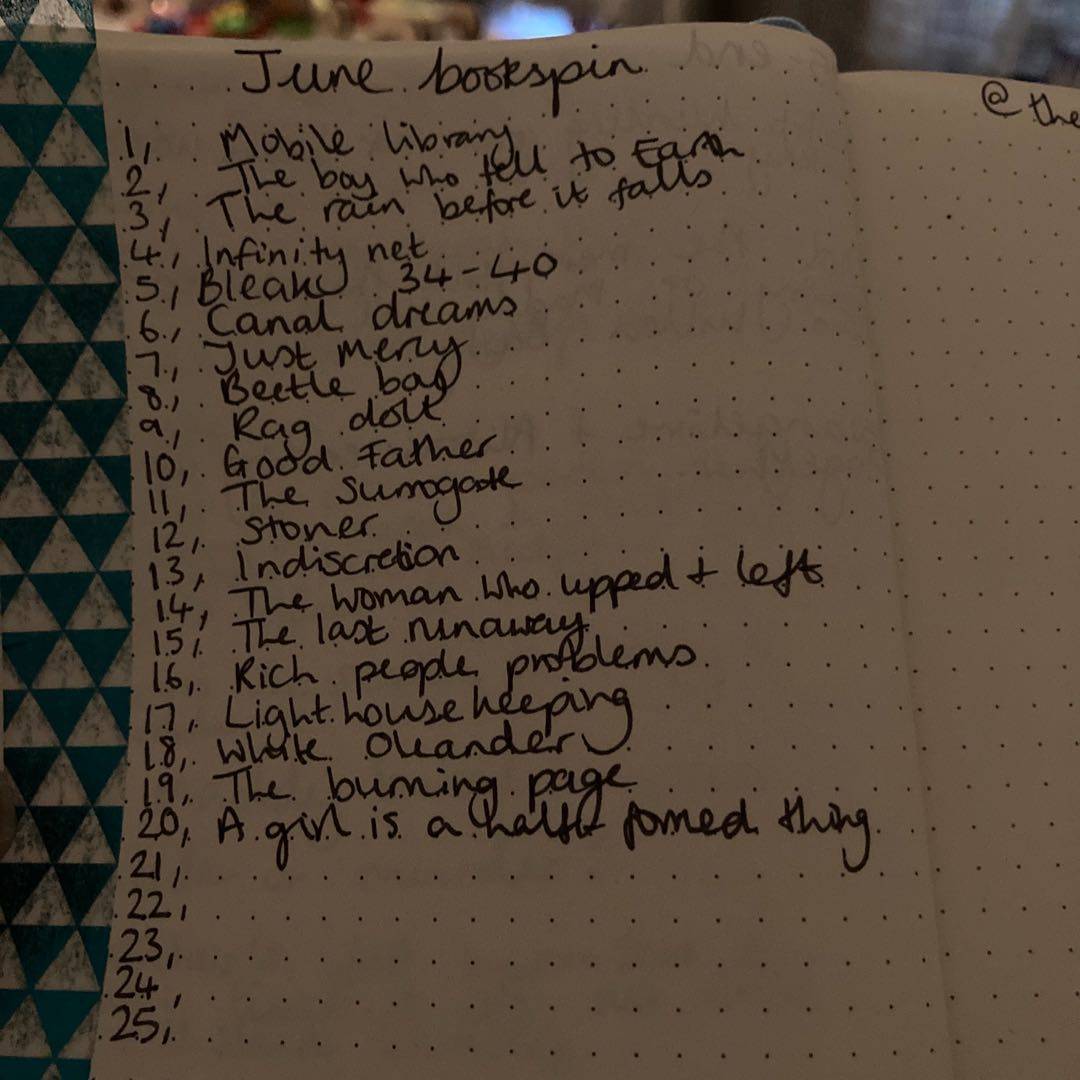 June bookspin
@the
1, Mobile library
2, The boy who fell to Earth
3, The rain before it falls
4, Infinity net
5, Bleak 34-40
6, Canal dreams
7, Just mercy
8, Beetle bag
9, Rag doll
10, Good Father
11, The Surrogate
12, Stoner
13, Indiscretion
14, The woman who upped + left
15, The last runaway
16, Rich people problems
17, Lighthouse keeping
18, White Oleander
19, The burning page
20, A girl is a half formed thing
21,
22,
23,
24,
25,